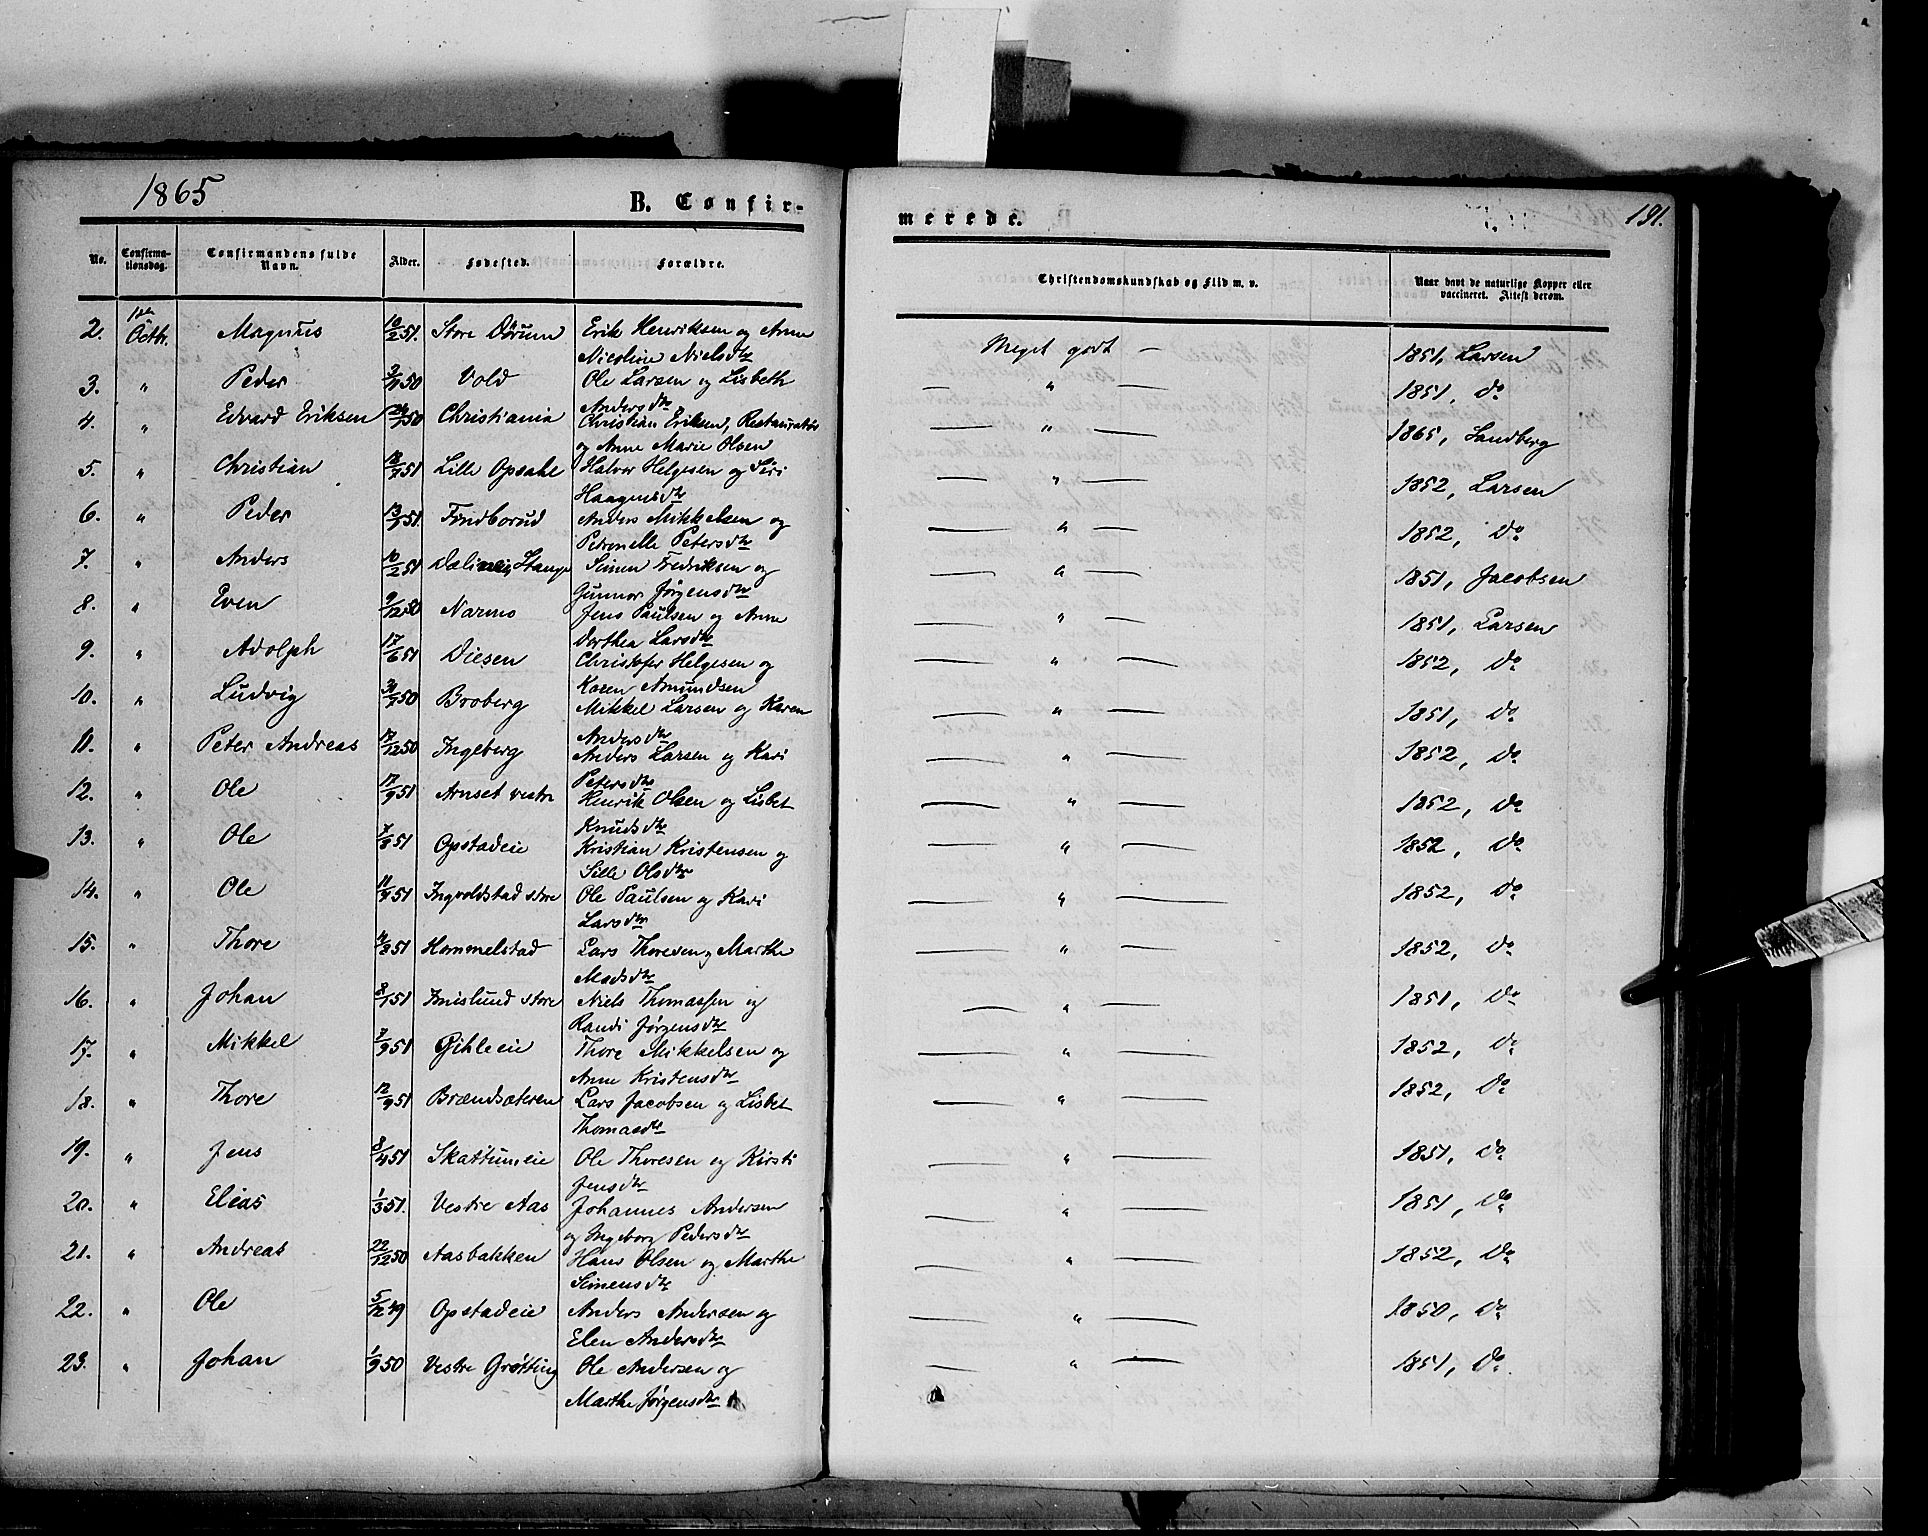 1865
B. Confir-
merede.
191.
No.
Confirma-
tionsdag.
Confirmandens fulde
Navn.
Alder.
Fødested.
Forældre.
Christendomskundskab og Flid m. v.
Naar havt de naturlige Kopper eller
vaccineret. Attest derom.
2. 1ste Octbr. Magnus 10/2 51. Store Dørum Erik Henriksen og Anne Meget godt — 1851, Larsen
Nicoline Nielsdtr
3. " Peder 50 Vold Ole Larsen og Lisbeth — " — 1851, do
Andersdtr
4. " Edvard Eriksen 50 Christiania Christian Eriksen, Restauratør — " — 1865, Sandberg
og Anne Marie Olsen
5. " Christian 51 Lille Opsahl Halvor Helgesen og Siri — " — 1852, Larsen
Haagensdtr
6. " Peder 51. Findborud Anders Mikkelsen og — " — 1852, do
Petronelle Petersdtr
7. " Anders 10/2 51 Stange Simen Fredriksen og — " — 1851, Jacobsen
Gunnor Jørgensdtr
8. " Even 9/12 50 Narmo Jens Paulsen og Anne — " — 1851, Larsen
Dorthea Larsdtr
9. " Adolph 17/6 51 Diesen Christofer Helgesen og — " — 1852, do
Karen Amundsen
10. " Ludvig 50 Broberg Mikkel Larsen og Karen — " — 1851, do
Andersdtr
11. " Peter Andreas 17/12 50 Ingeberg Anders Larsen og Kari — " — 1852, do
Petersdtr
12. " Ole 17/9 51 Arnset vestre Henrik Olsen og Lisbet — " — 1852, do
Knudsdtr
13. " Ole 51 Opstadeie Kristian Kristensen og — " — 1852, do
Sille Olsdtr
14. " Ole 51 Ingvoldstad store Ole Paulsen og Kari — " — 1852, do
Larsdtr
15. " Thore 51 Hommelstad Lars Thoresen, Marthe — " — 1852, do
Madsdtr
16. " Johan 8/1 51 Imislund store Niels Thomassen og — " — 1851, do
Randi Jørgensdtr
17. " Mikkel 7/9 51 Gihleeie Thore Mikkelsen og — " — 1852, do
Anne Kristensdtr
18. " Thore 12/9 51 Brændsæteren Lars Jacobsen og Lisbet — " — 1852, do
Thomasdtr
19. " Jens 8/4 51 Skattumeie Ole Thoresen og Kirsti — " — 1851, do
Jensdtr
20. " Elias 1/3 51. Vestre Aas Johannes Andersen — " — 1851, do
og Ingeborg Pedersdtr
21. " Andreas 22/12 50 Aasbakken Hans Olsen og Marthe — " — 1852, do
Simensdtr
22. " Ole 5/12 49 Opstadeie Anders Andersen og — " — 1850, do
Elen Andersdtr
23. " Johan 1/9 50 Vestre Grøtting Ole Andersen og — " — 1851, do.
Marthe Jørgensdtr